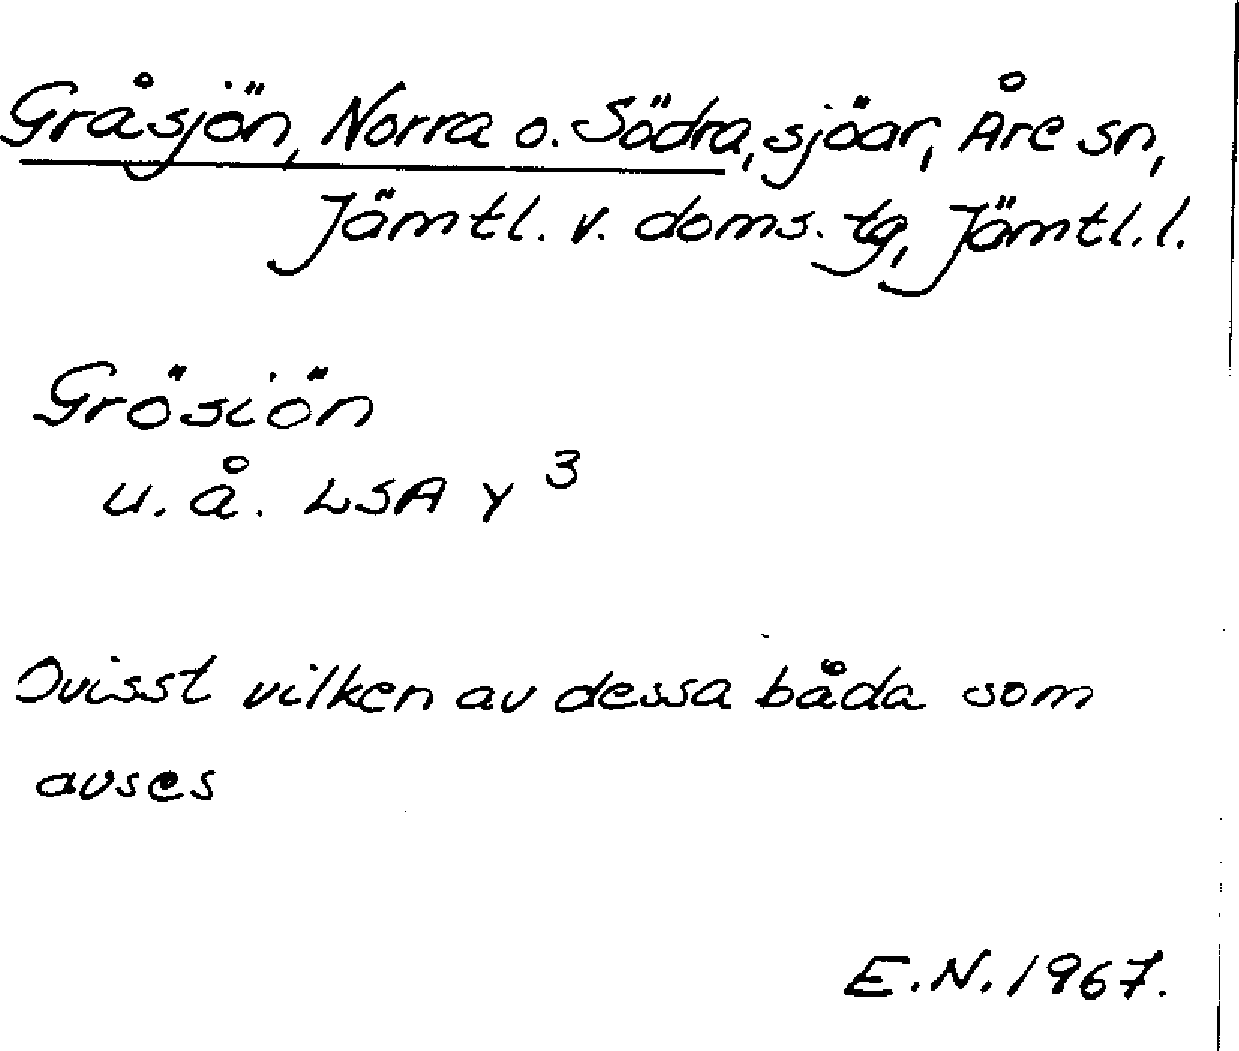 Gråsjön, Norra o. Södra, sjöar, Åre sn,
Jämtl. v. doms. tg, Jämtl. l.
Grösiön
u. å. LSA Y 3
Ovisst vilken av dessa båda som
avses
E.N. 1967.